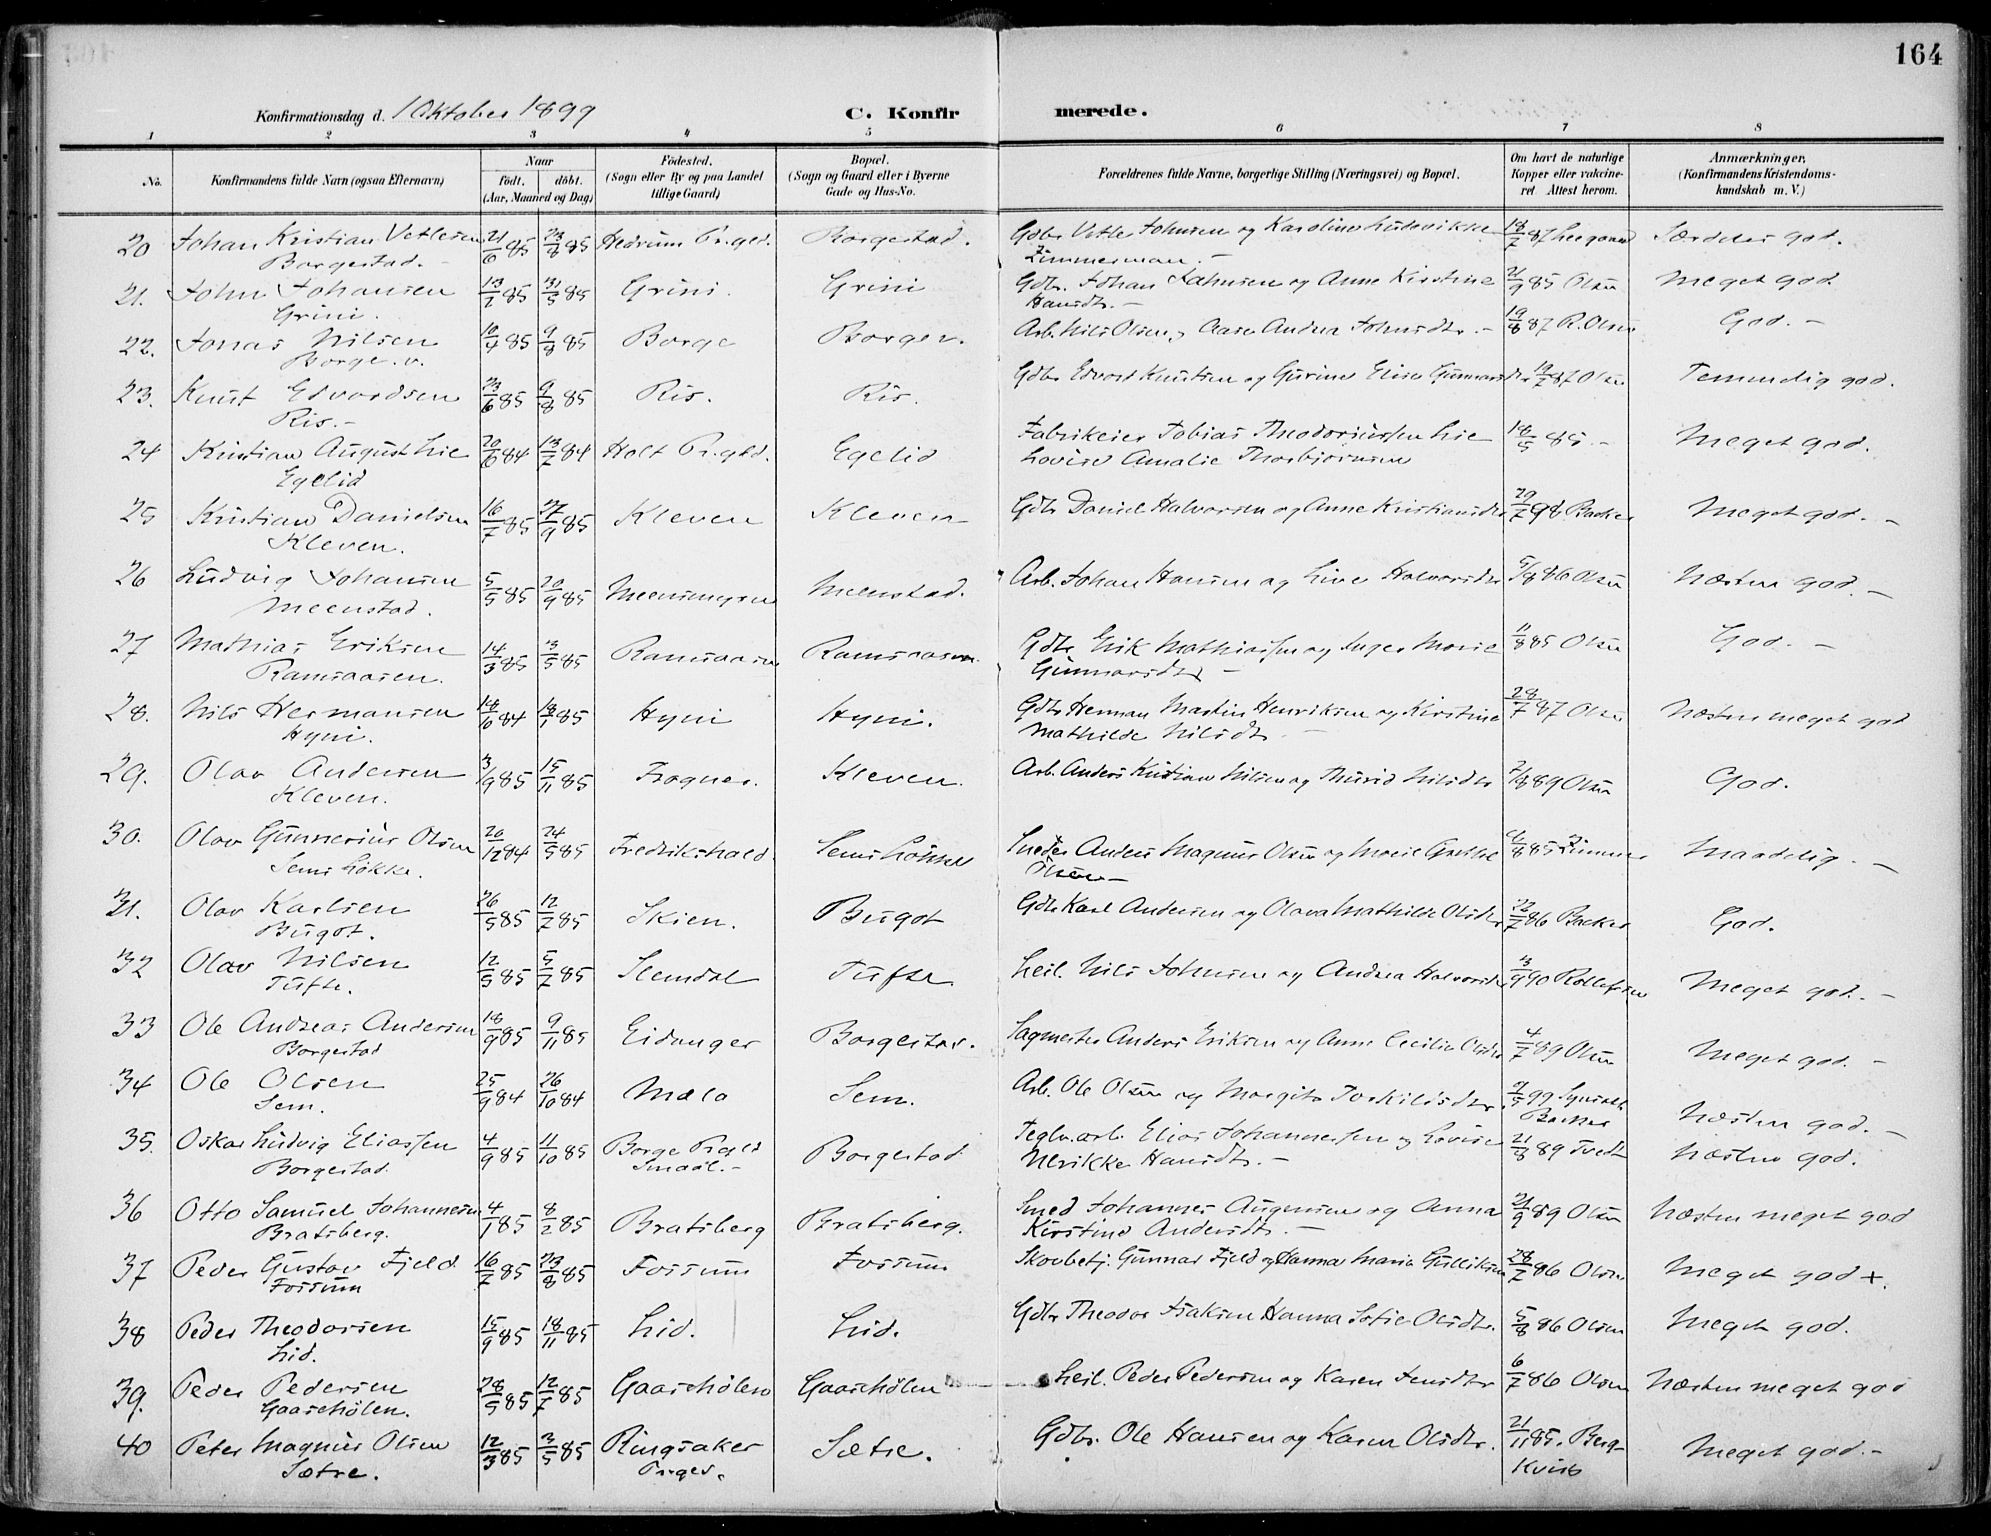 164
Konfirmationsdag d. 1 Oktober 1899
C. Konfirmerede.
1 2 3 4 5 6 7 8
No. Konfirmandens fulde Navn (ogsaa Efternavn) Naar født, døbt. (Aar, Maaned og Dag) Fødested. (Sogn eller By og paa Landet tillige Gaard) Bopæl. (Sogn og Gaard eller i Byerne Gade og Hus-No. Forældrenes fulde Navne, borgerlige Stilling (Næringsvei) og Bopæl. Om havt de naturlige Kopper eller vakcineret. Attest herom. Anmærkninger, (Konfirmandens Kristendomskundskab m. V.)
20 Johan Kristian Vetlesen 21/6 85 23/8 85 Hedrum Prgld. Borgestad. Gdbr. Vetle Johnsen og Karoline Ludovikke 18/7 87 Særdeles god.
Borgestad. Zimmerman.
21. John Johansen 13/2 85 31/5 85 Grini. Grini Gdbr. Johan Johnsen og Anne Kirstine 21/9 85 Olsen Meget god
Grini. Hansdtr.
22. Jonas Nilsen 10/4 85 9/8 85 Borge Borge v. Arb. Nils Olsen, Aase Andrea Johnsdtr. 19/8 87 R. Olsen God.
Borge. v.
23. Knut Edvardsen 23/6 85 9/8 85 Ris. Ris. Gdbr Edvard Knutsen og Gurine Elise Gunnarsdtr 19/7 87 Olsen Temmelig god.
Ris.
24 Kristian August Lie 20/6 84 13/7 84 Holt Prgld. Egelid Fabrikeier Tobias Theodoriussen Lie 18/5 85 Meget god.
Egelid Lovise Amalie Thorbjørnsen
25 Kristian Danielsen 16/7 85 27/9 85 Kleven Kleven Gdbr Daniel Halvorsen og Anne Kristiansdtr 20/7 98 Backer Meget god.
Kleven.
26 Ludvig Johansen 5/5 85 20/9 85 Meensmyren Meenstad. Arb. Johan Hansen og Line Halvorsdtr 5/8 86 Olsen Næsten god.
Meenstad.
27 Mathias Eriksen 14/3 85 3/5 85 Ramsaasen Ramsaasen Gdbr Erik Mathiassen og Inger Marie 11/8 85 Olsen God.
Ramsaasen. Gunnarsdtr
28. Nils Hermansen 18/10 84 18/1 85 Hyni Hyni. Gdbr Herman Martin Henriksen og Kirstine 28/7 87 Olsen Næsten meget god
Hyni. Mathilde Nilsdtr
29. Olav Andersen 3/9 85 15/11 85 Frogner. Kleven. Arb. Anders Kristian Nilsen og Thurid Nilsdtr 2/8 89 Olsen God.
Kleven.
30. Olav Gunnerius Olsen 20/12 84 24/5 85 Fredrikshald. Sems Løkke Snedker Anders Magnus Olsen og Marie Grethe Maadelig.
Sems Løkke. Olsen
31. Olav Karlsen 26/5 85 12/7 85 Skien. Bugot Gdbr Karl Andersen og Olava Mathilde Olsdtr 22/7 86 Backer God.
Bugot.
32 Olav Nilsen 12/5 85 5/7 85 Slemdal Tufte Leil. Nils Johnsen og Andrea Halvorsdtr 3/9 90 Rollefsen Meget god.
Tufte.
33 Ole Andreas Andersen 18/9 85 9/11 85 Eidanger Borgestad. Sagmester Anders Eriksen og Anne Cecilie Olsdtr 4/7 89 Olsen Meget god.
Borgestad
34 Ole Olsen 25/9 84 26/10 84 Mæla Sem. Arb. Ole Olsen og Margit Torkildsdtr. Næsten god.
Sem. Backer
35. Oskar Ludvig Eliassen 4/9 85 11/10 85 Borge Prgld Borgestad Teglv.arb. Elias Johannessen og Lovise 21/8 89 Tvedt Næsten god.
Borgestad. Smaal. Ulrikke Hansdtr.
36 Otto Samuel Johannesen 4/1 85 8/2 85 Bratsberg Bratsberg. Smed Johannes Augensen og Anna 21/9 89 Olsen Næsten meget god
Bratsberg. Kirstine Andersdtr.
37 Peder Gustav Fjeld 16/7 85 23/8 85 Fossum Fossum Skovbetj. Gunnar Fjeld og Hanna Maria Gulliksen 28/7 86 Olsen Meget god x.
Fossum
38 Peder Theodorsen 15/9 85 18/11 85 Lid. Lid. Gdbr Theodor Isaksen Hanna Sofie Olsdtr. 5/8 86 Olsen Meget god.
Lid.
39. Peder Pedersen 28/5 85 12/7 85 Gaasehølen Gaasehølen Leil. Peder Pedersen og Karen Jensdtr 6/7 86 Olsen Næsten meget god
Gaasehølen.
40 Peter Magnus Olsen 12/3 85 3/5 85 Ringsaker Sætre. Gdbr. Ole Hansen og Karen Olsdtr. 21/11 85. Berg- Meget god.
Sætre. Prgld. Kvist